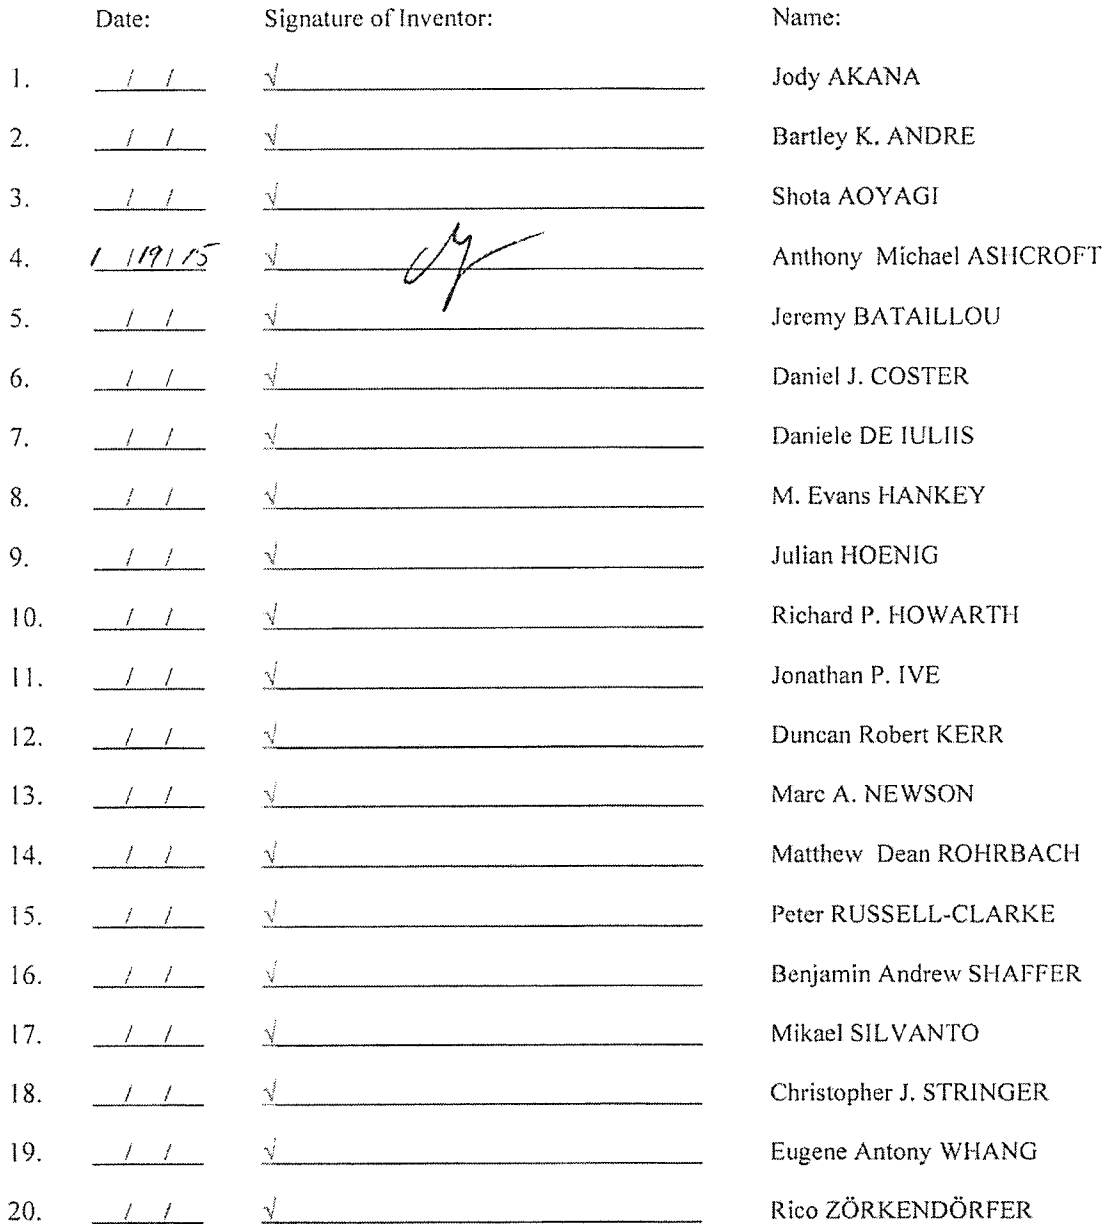 Date: Signature of Inventor: Name:
1. / / √ Jody AKANA
2. / / √ Bartley K. ANDRE
3. / / √ Shota AOYAGI
4. 1 /19/ 15 √ Anthony Michael ASHCROFT
5. / / √ Jeremy BATAILLOU
6. / / √ Daniel J. COSTER
7. / / √ Daniele DE IULIIS
8. / / √ M. Evans HANKEY
9. / / √ Julian HOENIG
10. / / √ Richard P. HOWARTH
11. / / √ Jonathan P. IVE
12. / / √ Duncan Robert KERR
13. / / √ Marc A. NEWSON
14. / / √ Matthew Dean ROHRBACH
15. / / √ Peter RUSSELL-CLARKE
16. / / √ Benjamin Andrew SHAFFER
17. / / √ Mikael SILVANTO
18. / / √ Christopher J. STRINGER
19. / / √ Eugene Antony WHANG
20. / / √ Rico ZÖRKENDÖRFER